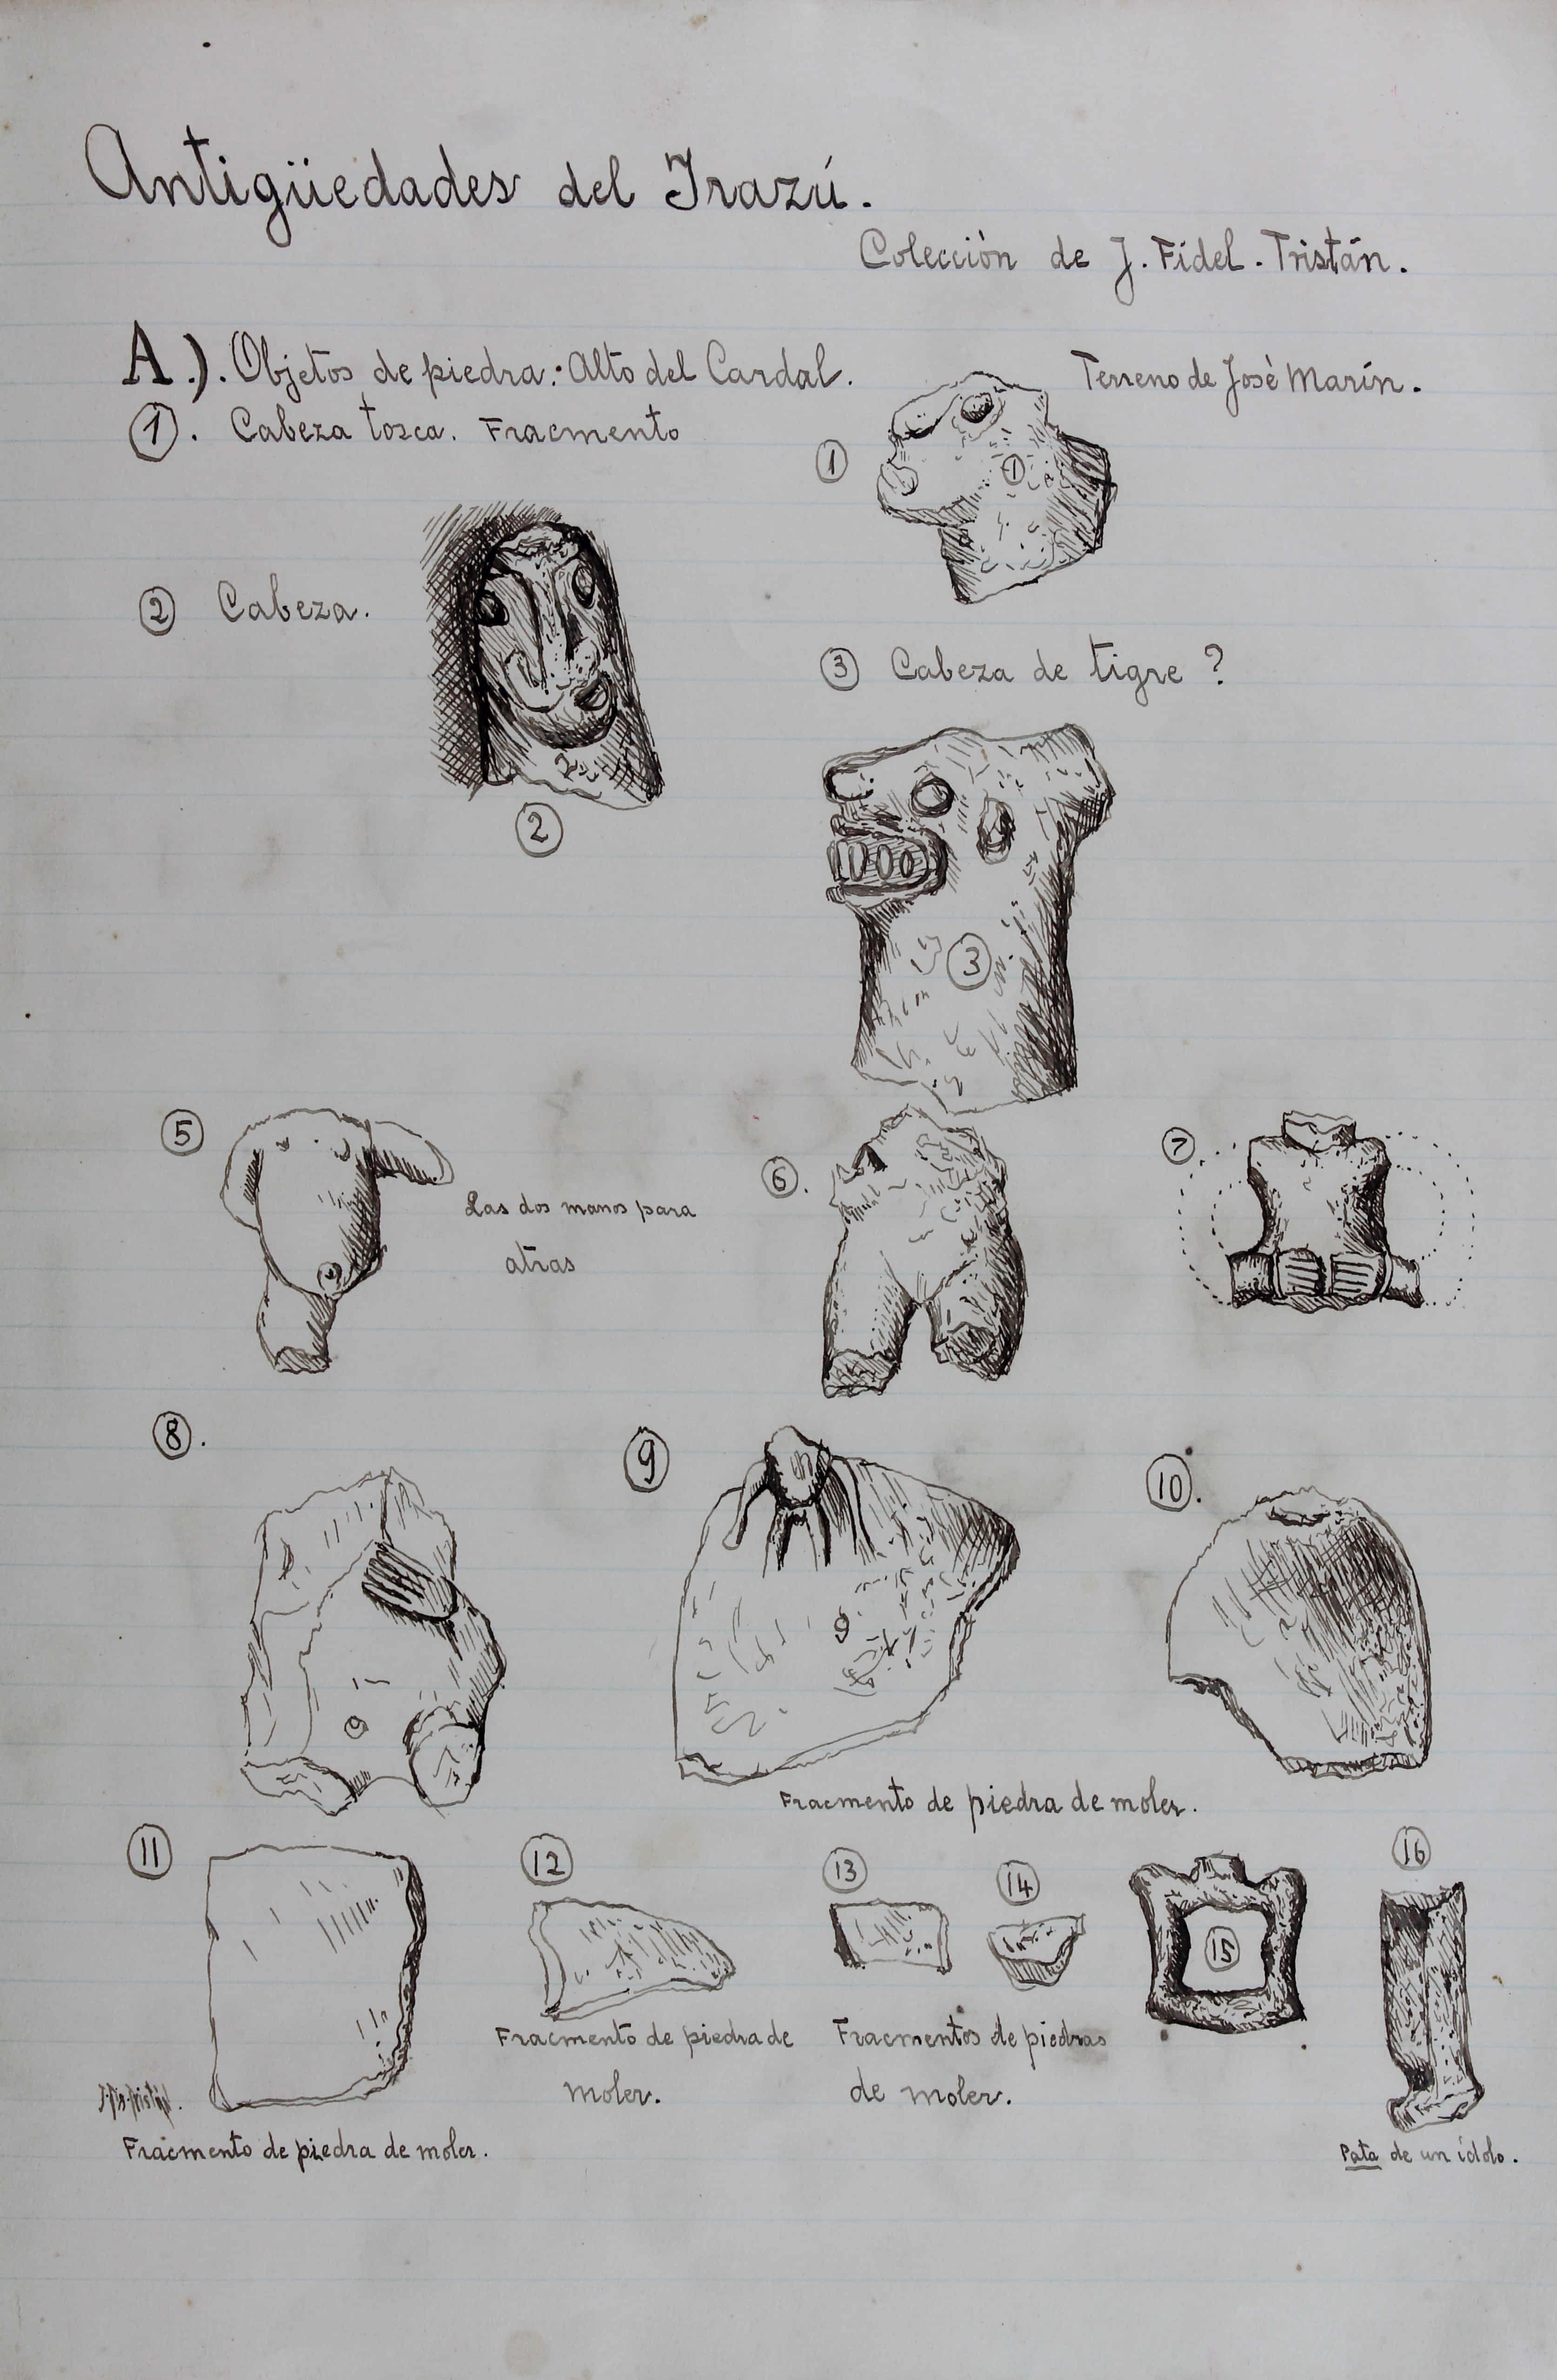 Antigüedades del Irazú.
Colección de J. Fidel. Tristán.
A.). Objetos de piedra: Alto del Cardal. Terreno de José Marín.
1. Cabeza tosca. Fracmento
1
1
2 Cabeza.
3 Cabeza de tigre ?
2
3
5
6.
7
Las dos manos para
atras
8.
9
10.
9
Fracmento de piedra de moler.
11
12
13
14
15
16
Fracmento de piedra de
moler.
Fracmentos de piedras
de moler.
Fracmento de piedra de moler.
Pata de un ídolo.